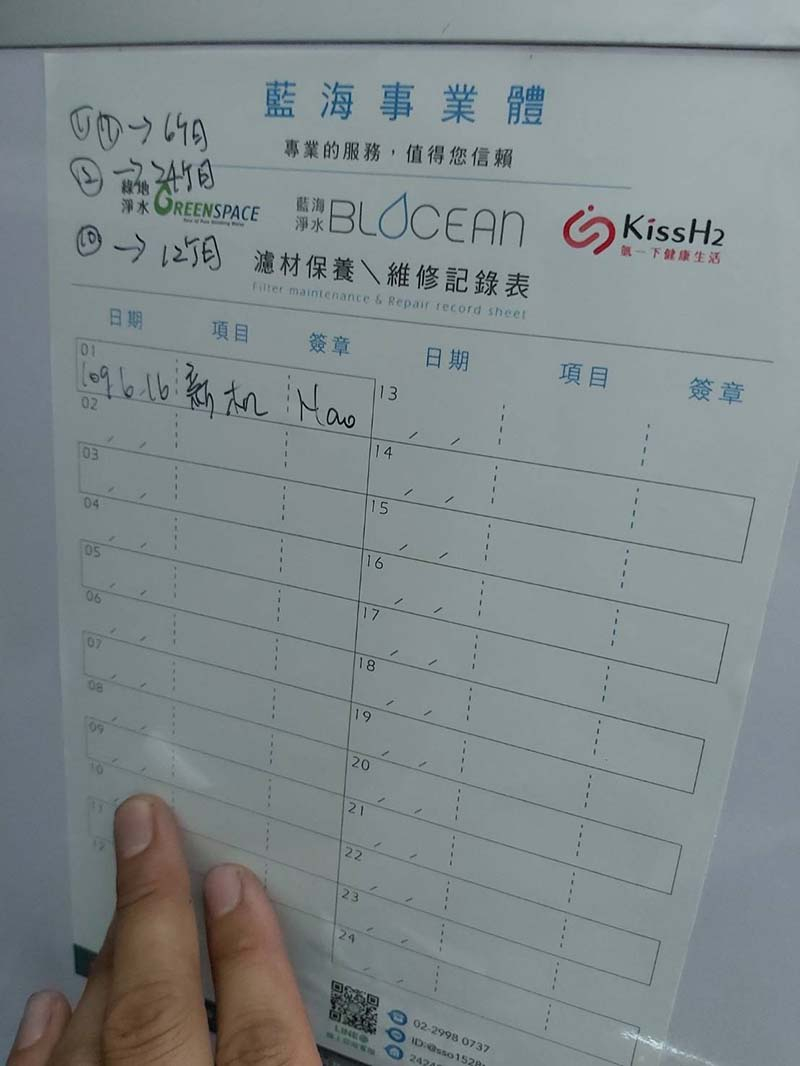 藍海事業體
專業的服務，值得您信賴
→ 6個月
⑫ → 24個月
⑩ → 12個月
綠地淨水 GREENSPACE
藍海淨水 BLOCEAN
KissH2
氫一下健康生活
濾材保養\維修記錄表
Filter maintenance & Repair record sheet
日期 項目 簽章 日期 項目 簽章
01 109.6.16 新机 Hao
02
03
04
05
06
07
08
09
10
11
12
13
14
15
16
17
18
19
20
21
22
23
24
LINE@
02-2998 0737
ID:@sso1528
2424